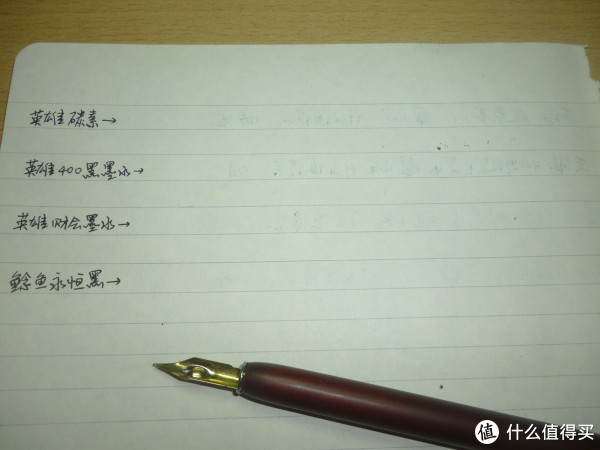 英雄碳素→
英雄400黑墨水→
英雄财会墨水→
鲶鱼永恒黑→
值 什么值得买